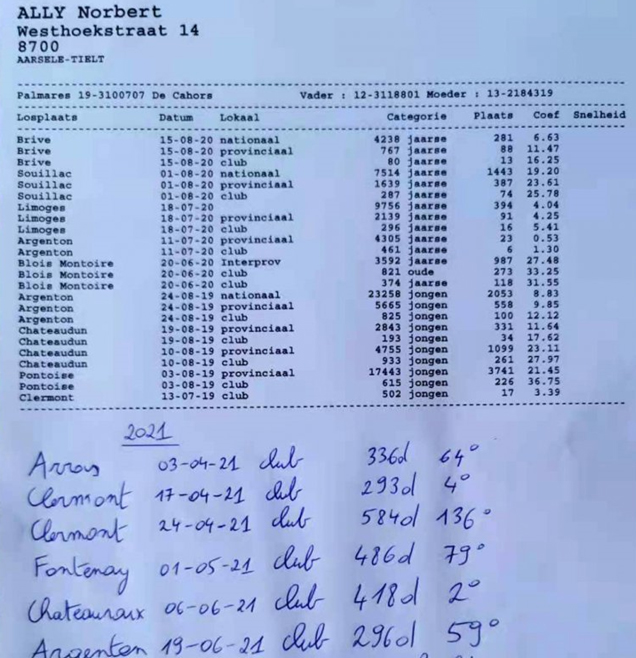 ALLY Norbert
Westhoekstraat 14
8700
AARSELE-TIELT
Palmares 19-3100707 De Cahors Vader : 12-3118801 Moeder : 13-2184319
Losplaats Datum Lokaal Categorie Plaats Coef Snelheid
Brive 15-08-20 nationaal 4238 jaarse 281 6.63
Brive 15-08-20 provinciaal 767 jaarse 88 11.47
Brive 15-08-20 club 80 jaarse 13 16.25
Souillac 01-08-20 nationaal 7514 jaarse 1443 19.20
Souillac 01-08-20 provinciaal 1639 jaarse 387 23.61
Souillac 01-08-20 club 287 jaarse 74 25.78
Limoges 18-07-20 9756 jaarse 394 4.04
Limoges 18-07-20 provinciaal 2139 jaarse 91 4.25
Limoges 18-07-20 club 296 jaarse 16 5.41
Argenton 11-07-20 provinciaal 4305 jaarse 23 0.53
Argenton 11-07-20 club 461 jaarse 6 1.30
Blois Montoire 20-06-20 Interprov 3592 jaarse 987 27.48
Blois Montoire 20-06-20 club 821 oude 273 33.25
Blois Montoire 20-06-20 club 374 jaarse 118 31.55
Argenton 24-08-19 nationaal 23258 jongen 2053 8.83
Argenton 24-08-19 provinciaal 5665 jongen 558 9.85
Argenton 24-08-19 club 825 jongen 100 12.12
Chateaudun 19-08-19 provinciaal 2843 jongen 331 11.64
Chateaudun 19-08-19 club 193 jongen 34 17.62
Chateaudun 10-08-19 provinciaal 4755 jongen 1099 23.11
Chateaudun 10-08-19 club 933 jongen 261 27.97
Pontoise 03-08-19 provinciaal 17443 jongen 3741 21.45
Pontoise 03-08-19 club 615 jongen 226 36.75
Clermont 13-07-19 club 502 jongen 17 3.39
2021
Arras 03-04-21 club 336d 64°
Clermont 17-04-21 club 293d 4°
Clermont 24-04-21 club 584d 136°
Fontenay 01-05-21 club 486d 79°
Chateauroux 06-06-21 club 418d 2°
Argenton 19-06-21 club 296d 59°